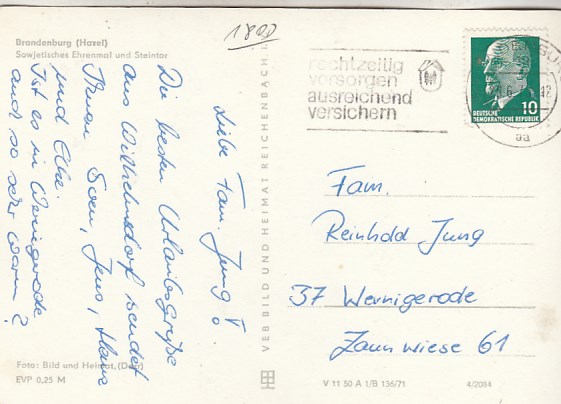 Brandenburg (Havel)
Sowjetisches Ehrenmal und Steintor
1800
Liebe Fam. Jung!
Die besten Urlaubsgrüße
aus Wilhelmsdorf sendet
Ihnen Sven, Jens, Hans
und Elke.
Ist es in Wernigerode
auch so sehr warm?
Foto: Bild und Heimat (Darr)
EVP 0,25 M
VEB BILD UND HEIMAT REICHENBACH i.
rechtzeitig
vorsorgen
ausreichend
versichern
10
DEUTSCHE
DEMOKRATISCHE REPUBLIK
aa
Fam.
Reinhold Jung
37 Wernigerode
Zaunwiese 61
V 11 50 A 1/B 136/71
4/2084